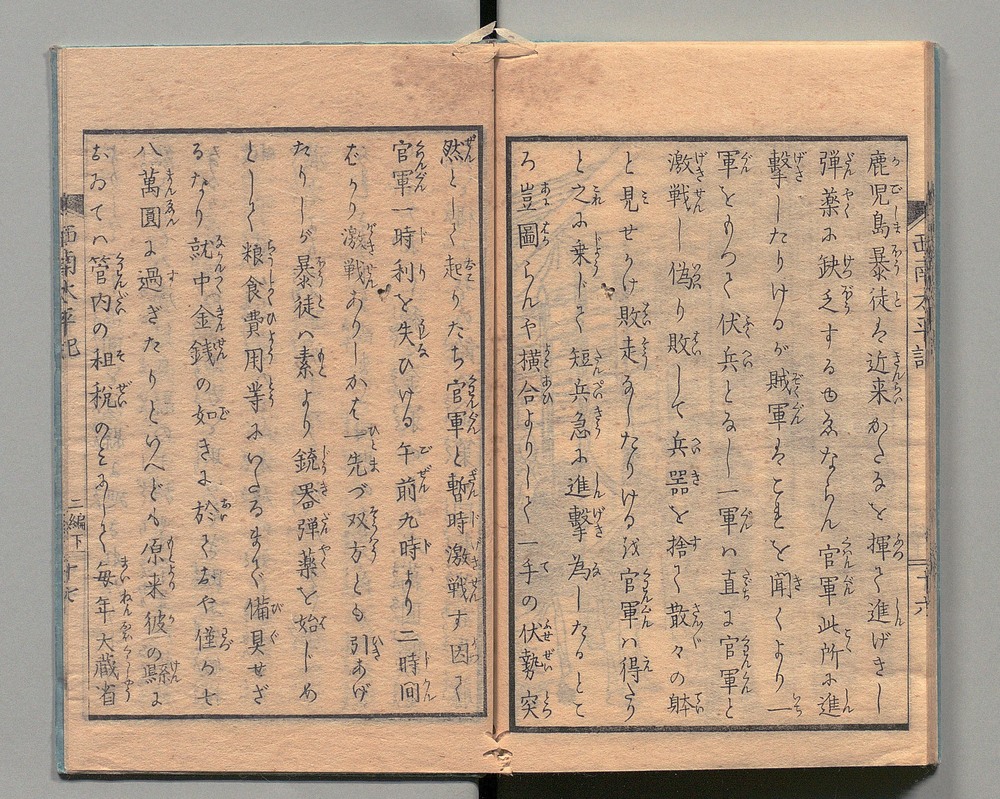 鹿児島暴徒は近来かたなを揮て進げきし
弾薬に缺乏するゆゑならん官軍此所に進
撃したりけるが賊軍はこれを聞くより一
軍をもつて伏兵となし一軍ハ直に官軍と
激戦し偽り敗して兵器を捨て散々の躰
と見せかけ敗走なしたりける故官軍ハ得たり
と之に乗じて短兵急に進撃為したるとて
ろ豈圖らんや横合よりして一手の伏勢突
然として起りたち官軍と暫時激戦す因て
官軍一時利を失ひける午前九時より二時間
むかり激戦ありしかば一先づ双方とも引あげ
たりしが暴徒ハ素より銃器弾薬を始じめ
として粮食費用等にいたるまで備具せざ
るなり就中金銭の如きに於てをや僅か七
八萬圓に過ぎたりといへども原来彼の縣に
おゐてハ管内の租税のミにして毎年大蔵省
西南太平記
十六
西南太平記
二編下
十七